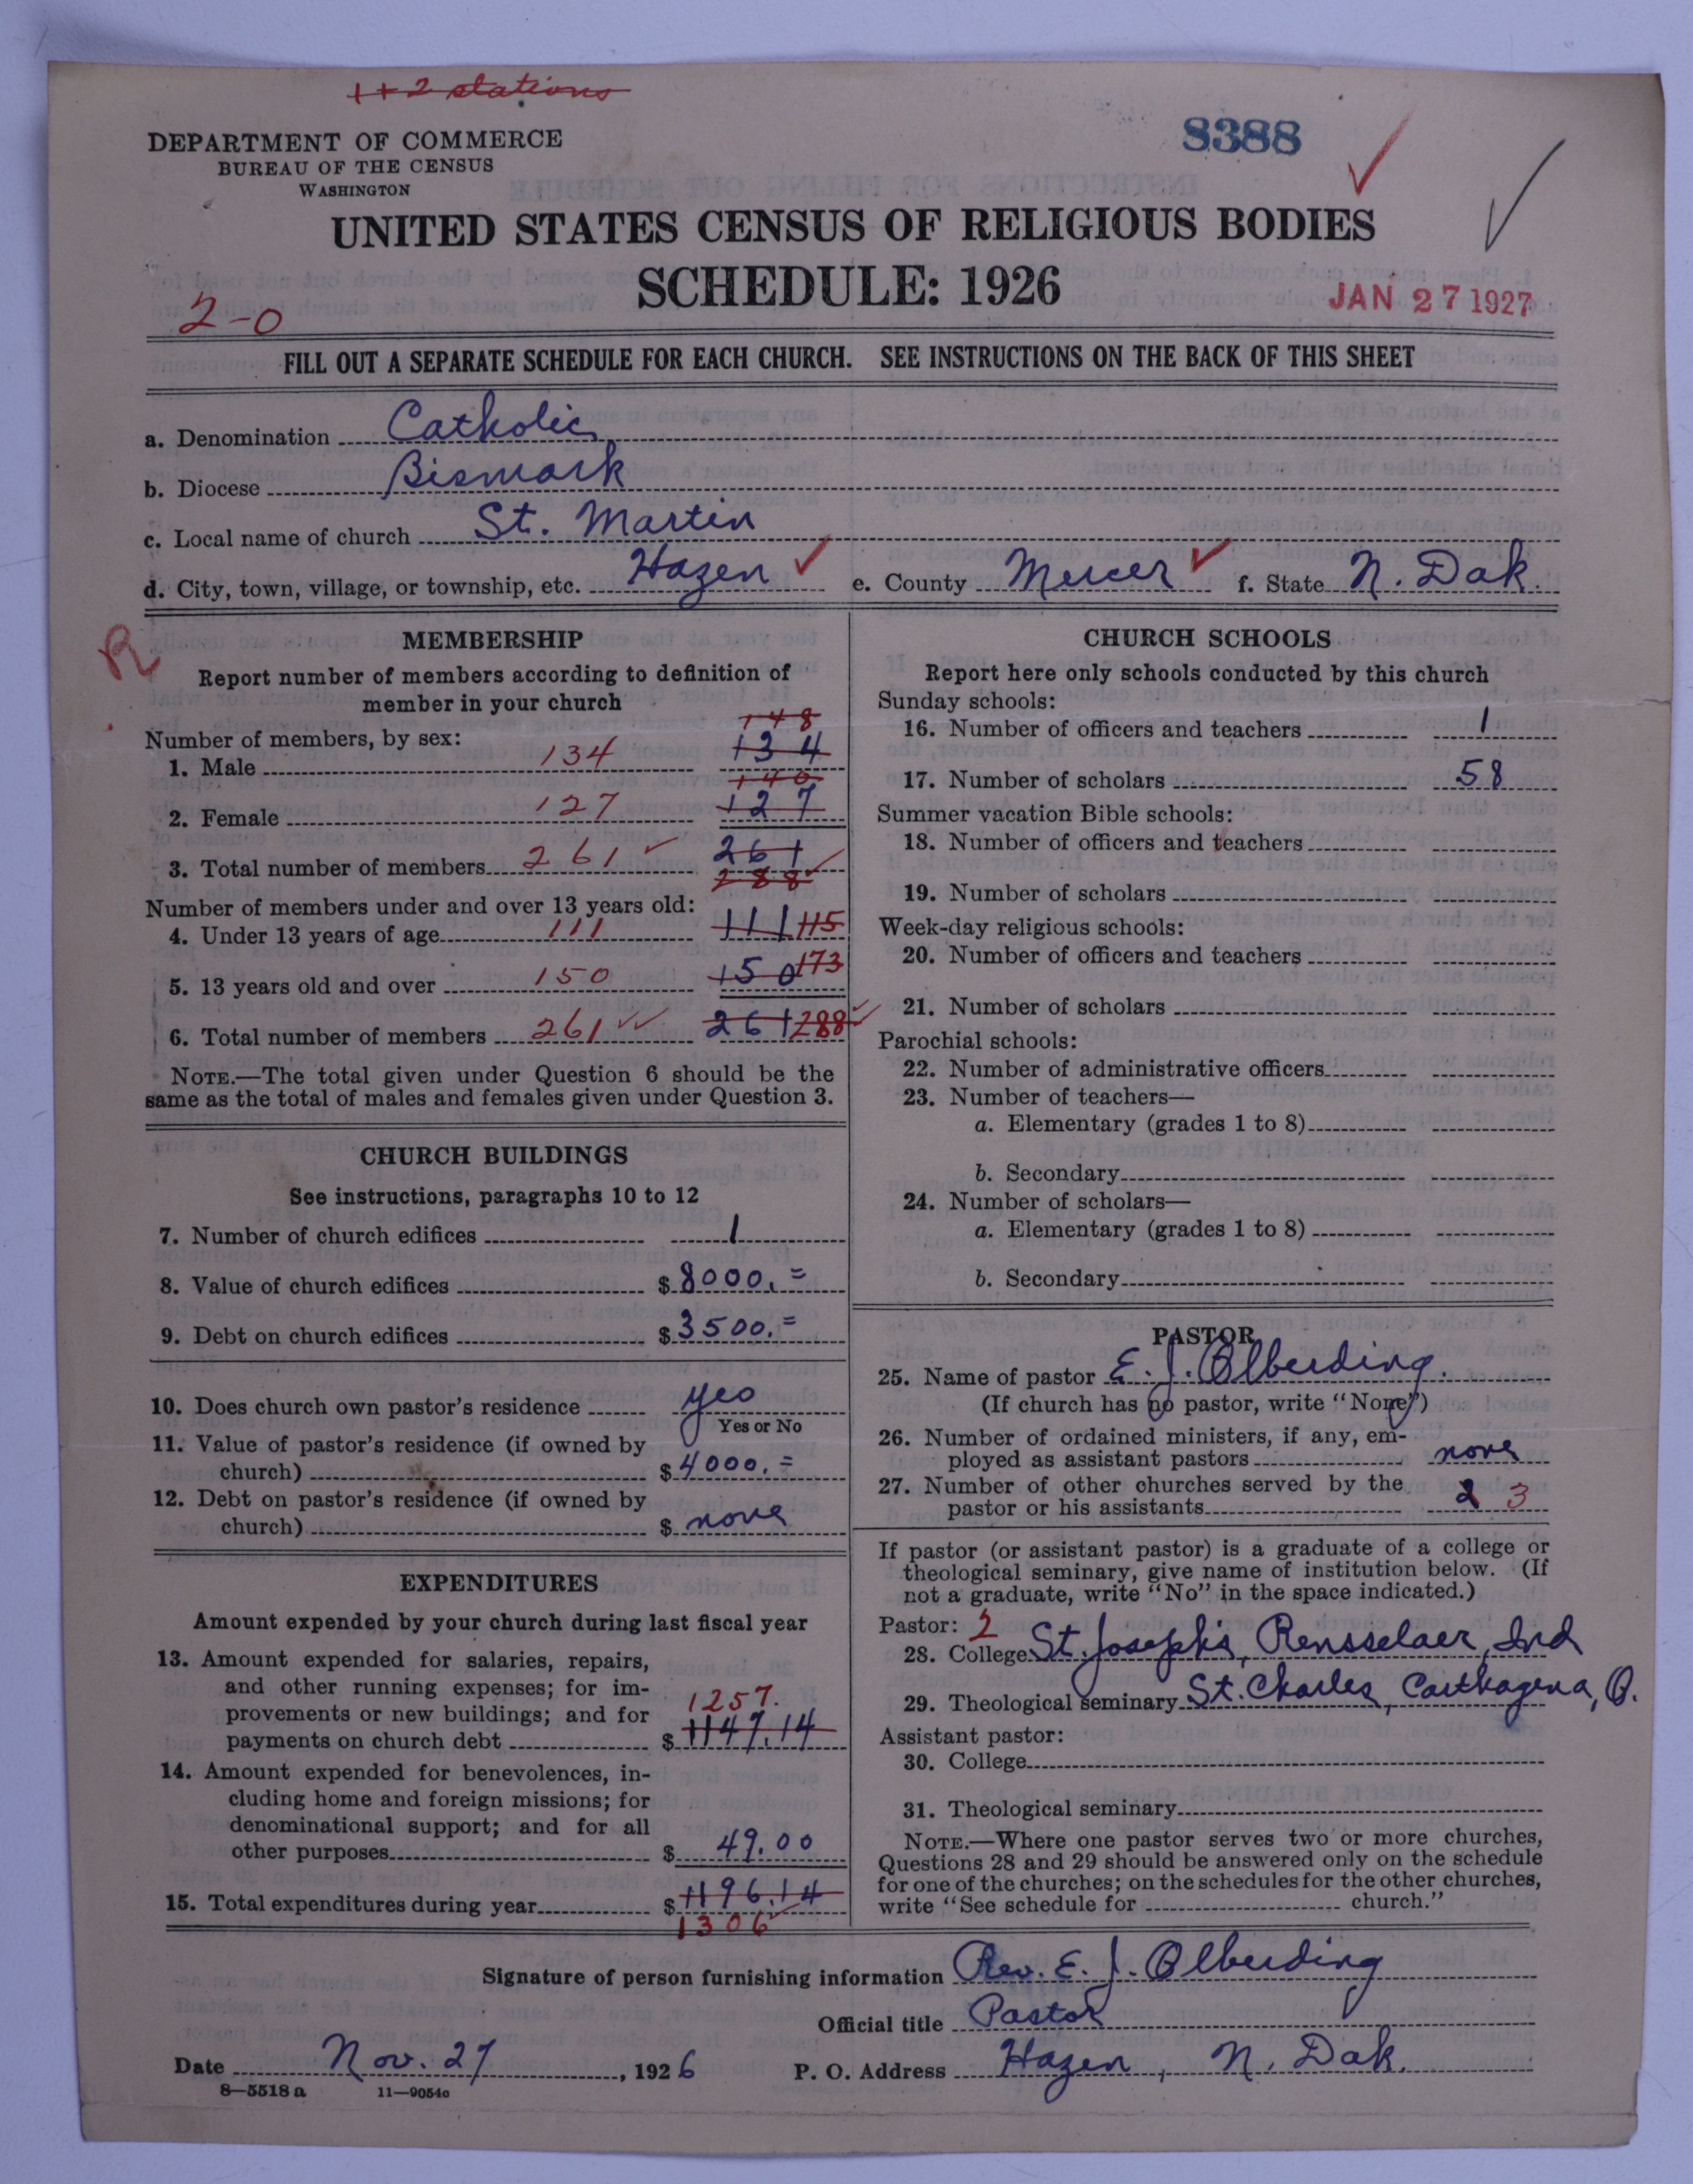 1+2 stations
8388
DEPARTMENT OF COMMERCE
BUREAU OF THE CENSUS
WASHINGTON
UNITED STATES CENSUS OF RELIGIOUS BODIES
SCHEDULE: 1926
JAN 27 1927
2-0
FILL OUT A SEPARATE SCHEDULE FOR EACH CHURCH. SEE INSTRUCTIONS ON THE BACK OF THIS SHEET
a. Denomination Catholic
b. Diocese Bismark
c. Local name of church St. Martin
d. City, town, village, or township, etc. Hazen e. County Mercer f. State N. Dak.
R
MEMBERSHIP
Report number of members according to definition of
member in your church
148
Number of members, by sex:
1. Male 134 134
140
2. Female 127 127
3. Total number of members 261 261
288
Number of members under and over 13 years old:
4. Under 13 years of age 111 111 115
5. 13 years old and over 150 150 173
6. Total number of members 261 261 288
NOTE.—The total given under Question 6 should be the
same as the total of males and females given under Question 3.
CHURCH BUILDINGS
See instructions, paragraphs 10 to 12
7. Number of church edifices 1
8. Value of church edifices $ 8000.=
9. Debt on church edifices $ 3500.=
10. Does church own pastor's residence yes
Yes or No
11. Value of pastor's residence (if owned by
church) $ 4000.=
12. Debt on pastor's residence (if owned by
church) $ none
EXPENDITURES
Amount expended by your church during last fiscal year
13. Amount expended for salaries, repairs,
and other running expenses; for im-
provements or new buildings; and for 1257.
payments on church debt $ 1147.14
14. Amount expended for benevolences, in-
cluding home and foreign missions; for
denominational support; and for all
other purposes $ 49.00
15. Total expenditures during year $ 1196.14
1306
CHURCH SCHOOLS
Report here only schools conducted by this church
Sunday schools:
16. Number of officers and teachers 1
17. Number of scholars 58
Summer vacation Bible schools:
18. Number of officers and teachers
19. Number of scholars
Week-day religious schools:
20. Number of officers and teachers
21. Number of scholars
Parochial schools:
22. Number of administrative officers
23. Number of teachers—
a. Elementary (grades 1 to 8)
b. Secondary
24. Number of scholars—
a. Elementary (grades 1 to 8)
b. Secondary
PASTOR
25. Name of pastor E. J. Olberding.
(If church has no pastor, write "None")
26. Number of ordained ministers, if any, em-
ployed as assistant pastors none
27. Number of other churches served by the
pastor or his assistants 2 3
If pastor (or assistant pastor) is a graduate of a college or
theological seminary, give name of institution below. (If
not a graduate, write "No" in the space indicated.)
Pastor: 2
28. College St. Joseph's, Rensselaer, Ind
29. Theological seminary St. Charles, Carthagena, O.
Assistant pastor:
30. College
31. Theological seminary
NOTE.—Where one pastor serves two or more churches,
Questions 28 and 29 should be answered only on the schedule
for one of the churches; on the schedules for the other churches,
write "See schedule for church."
Signature of person furnishing information Rev. E. J. Olberding
Official title Pastor
Date Nov. 27, 1926 P. O. Address Hazen, N. Dak.
8—5518 a 11—9054c